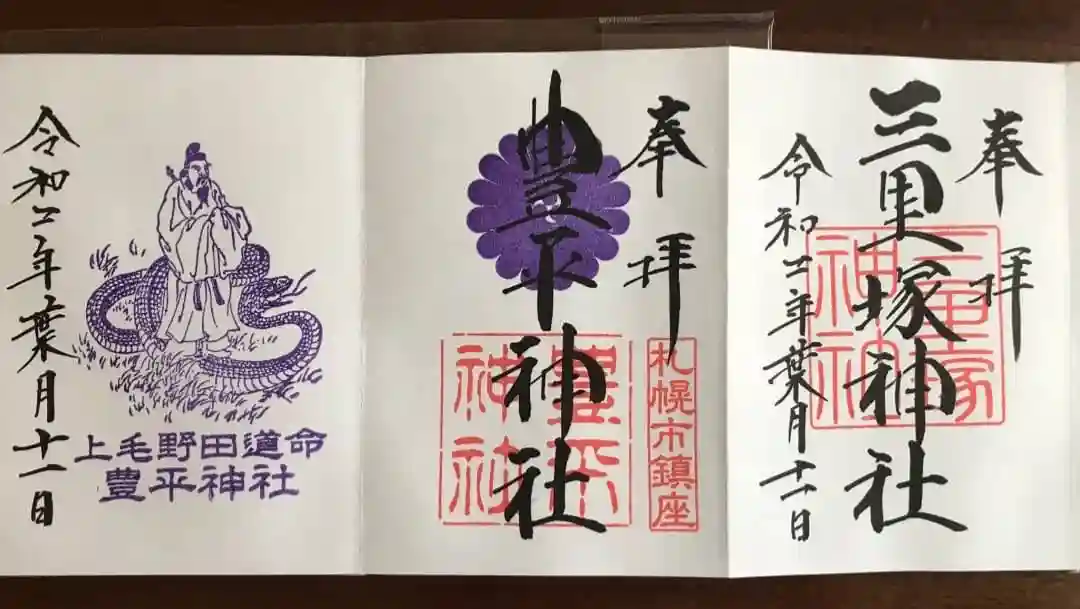 奉拝
三里塚神社
令和二年葉月十一日
三里塚神社
奉拝
豊平神社
豊平神社
札幌市鎮座
令和二年葉月十一日
上毛野田道命
豊平神社